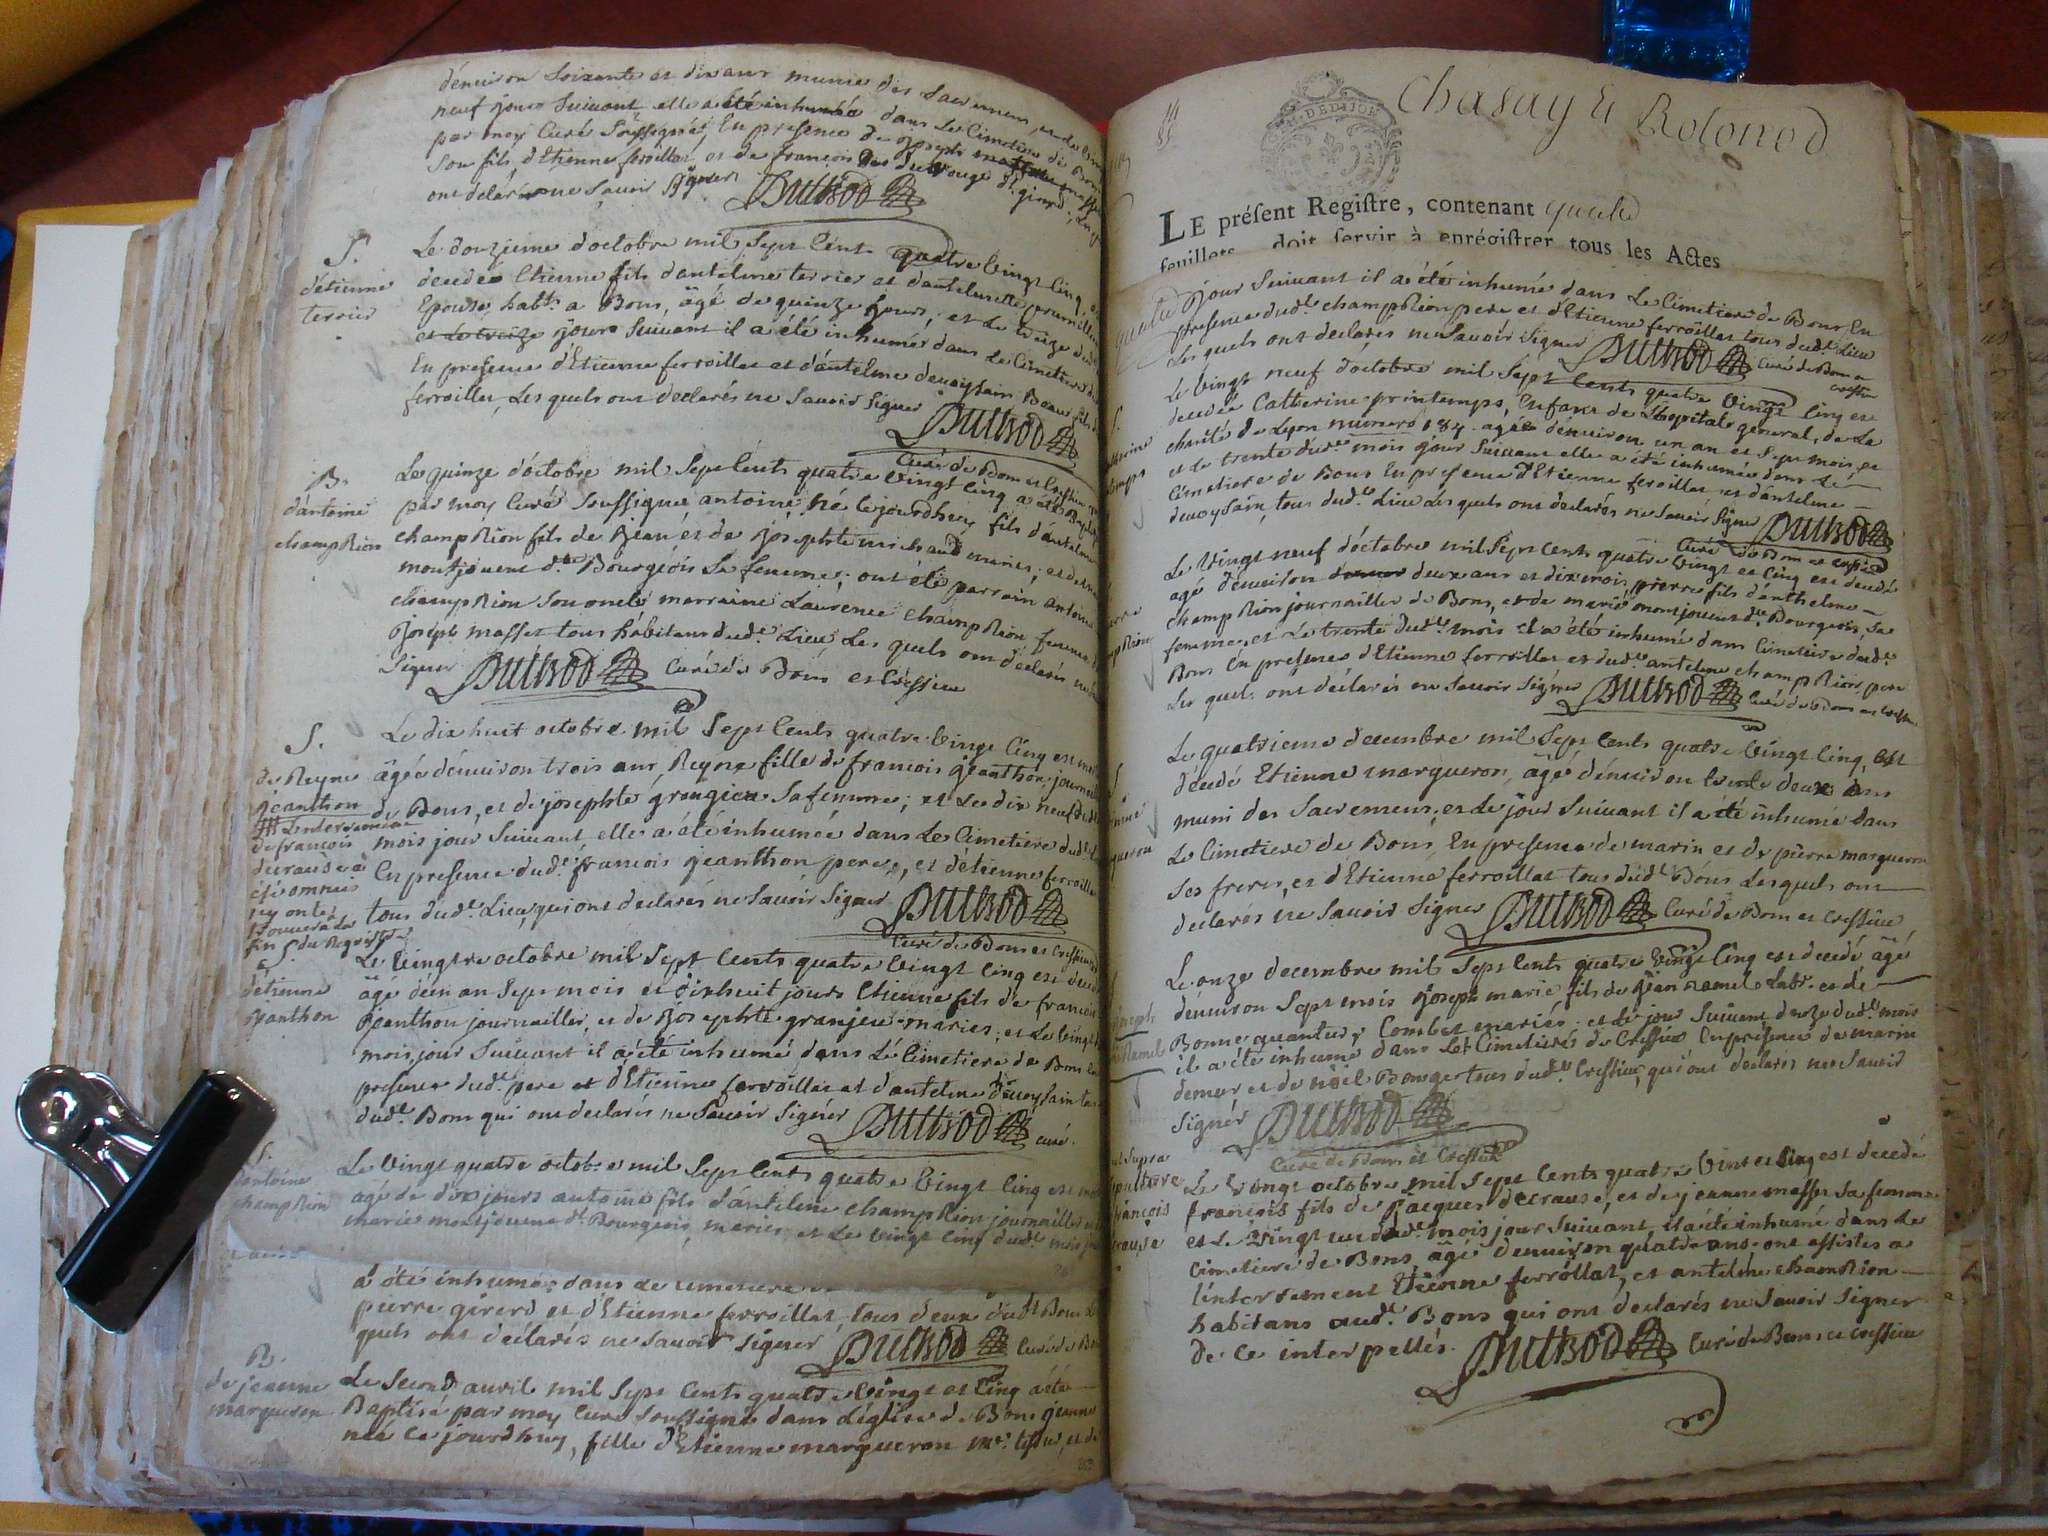 dénuiron soixante et dix ans munie des sacremens, et le
neuf jour suivant elle a été inhumée dans le cimetiere de Bons
par moy Curé soussigné, En presence de joseph
son fils, d'Etienne ferroillet, et de francois
ont declaré ne savoir signer Dutrod
S.
détienne
terrier
Le douzieme doctobre mil sept Cents quatre vingt Cinq
decedée Etienne fils dantelme terrier et dantelmette
Epouse, habts a Bons, âgé de quinze jours, et le treize dud
et le treize jours suivant il a été inhumé dans le Cimetiere
En presence d'Etienne ferroillet et d'antelme devoysain Beau fils
ferroillet, Lesquels ont declarés ne savoir signer Dutrod
Curé de Bons et Cressieu
B.
dantoine
chamption
Le quinze d'octobre mil sept Cents quatre vingt Cinq a été Baptisé
par moy Curé soussigné antoine né cejourdhuy fils d'antelme
chamption fils de jean et de josephte michaud mariés; et de
montjouvent dte Bourgeois sa femme; ont été parrain antoine
chamption son oncle marraine Laurence chamption femme
joseph masset tous habitans dudt Lieu Les quels ont déclarés
signer Dutrod Curé de Bons et Cressieu
S.
de Reyne
jeanthon
Linterrement
de francois
decrause a
été omis
on le
trouvera a la
fin du Registre
Le dix huit octobre mil sept Cents quatre vingt Cinq est
âgée dénuiron trois ans, Reyne fille de francois jeanthon, journallier
de Bons, et de josephte grangier sa femme; et Le dix neuf dud
mois jour suivant elle a été inhumée dans Le Cimetiere dudt
En presence dudt francois jeanthon pere, et détienne ferroillet
tous dudt Lieu, qui ont declarés ne savoir signer Dutrod
Curé de Bons et Cressieu
S.
détienne
jeanthon
Le vingt octobre mil sept Cents quatre vingt Cinq est decedé
âgé déun an sept mois et dixhuit jours Etienne fils de francois
jeanthon journallier, et de josephte granjeu mariés; et Le vingt
mois jour suivant il a été inhumé dans Le Cimetiere de Bons
presence dudt pere et d'Etienne ferroillet et d'antelme devoysain
dudt Bons qui ont declarés ne savoir signer Dutrod curé.
S.
dantoine
chamption
Le vingt quatre octobre mil sept Cents quatre vingt Cinq est
âgé de dix jours antoine fils d'antelme chamption journallier
marie montjouvent dt Bourgeois, mariés, et Le vingt Cinq dudt mois
a été inhumé dans le cimetiere
pierre girerd et d'Etienne ferroillet, tous deux dudt Bons
quels ont declarés ne savoir signer Dutrod Curé de
B.
de jeanne
margueron
Le second avril mil sept Cents quatre vingt et Cinq a été
Baptisé par moy Curé soussigné dans L'église de Bons jeanne
née ce jourdhuy, fille d'Etienne margueron me. tissier, et de
Chasay & Rolonod
G. DE DIJON
LE présent Registre, contenant quatre
feuillets, doit servir à enrégistrer tous les Actes
jour suivant il a été inhumé dans Le Cimetiere de Bons En
presence dudt chamption pere et d'Etienne ferroillet tous dudt Lieu
Les quels ont declarés ne savoir signer Dutrod Curé de Bons et
Cressieu
Le vingt neuf d'octobre mil sept Cents quatre vingt Cinq est
decedée Catherine printemps, Enfant de L'hopital general, de La
charité de Lyon numero 184. agée dénuiron un an et sept mois, et
et Le trente dudt mois jour suivant elle a été inhumée dans Le
Cimetiere de Bons En presence d'Etienne ferroillet et dantelme
devoysain, tous dudt Lieu Les quels ont declarés ne savoir signer Dutrod
Curé de Bons et Cressieu
Le vingt neuf d'octobre mil sept Cents quatre vingt et Cinq est decedé
agé dénuiron deux ans et dix mois, pierre fils d'anthelme
chamption journallier de Bons, et de marie montjouvent dt Bourgeois, sa
femme, et Le trente dudt mois il a été inhumé dans Cimetiere dudt
Bons En presence d'Etienne ferroillet et dudt antelme chamption, pere
Les quels ont déclarés ne savoir signer Dutrod Curé de Bons et Cressieu
Le quatrieme decembre mil sept Cents quatre vingt Cinq, est
decedé Etienne margueron, âgé dénuiron trente deux ans
muni des sacremens; et Le jour suivant il a été inhumé dans
Le Cimetiere de Bons, En presence de marin et de pierre margueron
ses freres, et d'Etienne ferroillet tous dudt Bons Lesquels ont
declarés ne savoir signer Dutrod Curé de Bons et Cressieu
Le onze decembre mil sept Cents quatre vingt Cinq est decedé âgé
dénuiron sept mois joseph marie, fils de jean Ramel Labr. et de
Bonne quantin, Combet mariés; et Le jour suivant douze dudt mois
il a été inhumé dans Le Cimetiere de Cressieu En presence de marin
demer et de noël Bonget tous dudt Cressieu, qui ont declarés ne savoir
signer Dutrod
Curé de Bons et Cressieu
ut supra
sepulture
francois
crause
Le vingt octobre mil sept Cents quatre vint et Cinq est decedé
francois fils de jacques decrause, et de jeanne masset sa femme
et Le vingt un dudt mois jour suivant, il a été inhumé dans Le
Cimetiere de Bons, âgé dénuiron quatre ans. ont assistés a
l'interrement Etienne ferroillat, et antelme chamption
habitans audt Bons qui ont declarés ne savoir signer
de ce interpellés. Dutrod Curé de Bons et Cressieu